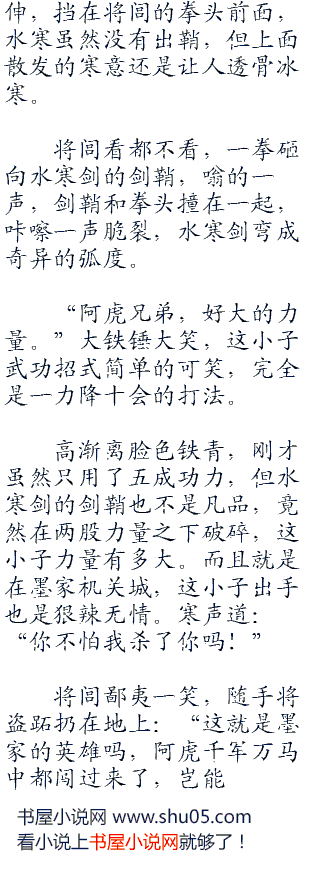 伸，挡在将闾的拳头前面，
水寒虽然没有出鞘，但上面
散发的寒意还是让人透骨冰
寒。
将闾看都不看，一拳砸
向水寒剑的剑鞘，嗡的一
声，剑鞘和拳头撞在一起，
咔嚓一声脆裂，水寒剑弯成
奇异的弧度。
“阿虎兄弟，好大的力
量。”大铁锤大笑，这小子
武功招式简单的可笑，完全
是一力降十会的打法。
高渐离脸色铁青，刚才
虽然只用了五成功力，但水
寒剑的剑鞘也不是凡品，竟
然在两股力量之下破碎，这
小子力量有多大。而且就是
在墨家机关城，这小子出手
也是狠辣无情。寒声道：
“你不怕我杀了你吗！”
将闾鄙夷一笑，随手将
盗跖扔在地上：“这就是墨
家的英雄吗，阿虎千军万马
中都闯过来了，岂能
书屋小说网 www.shu05.com
看小说上书屋小说网就够了！